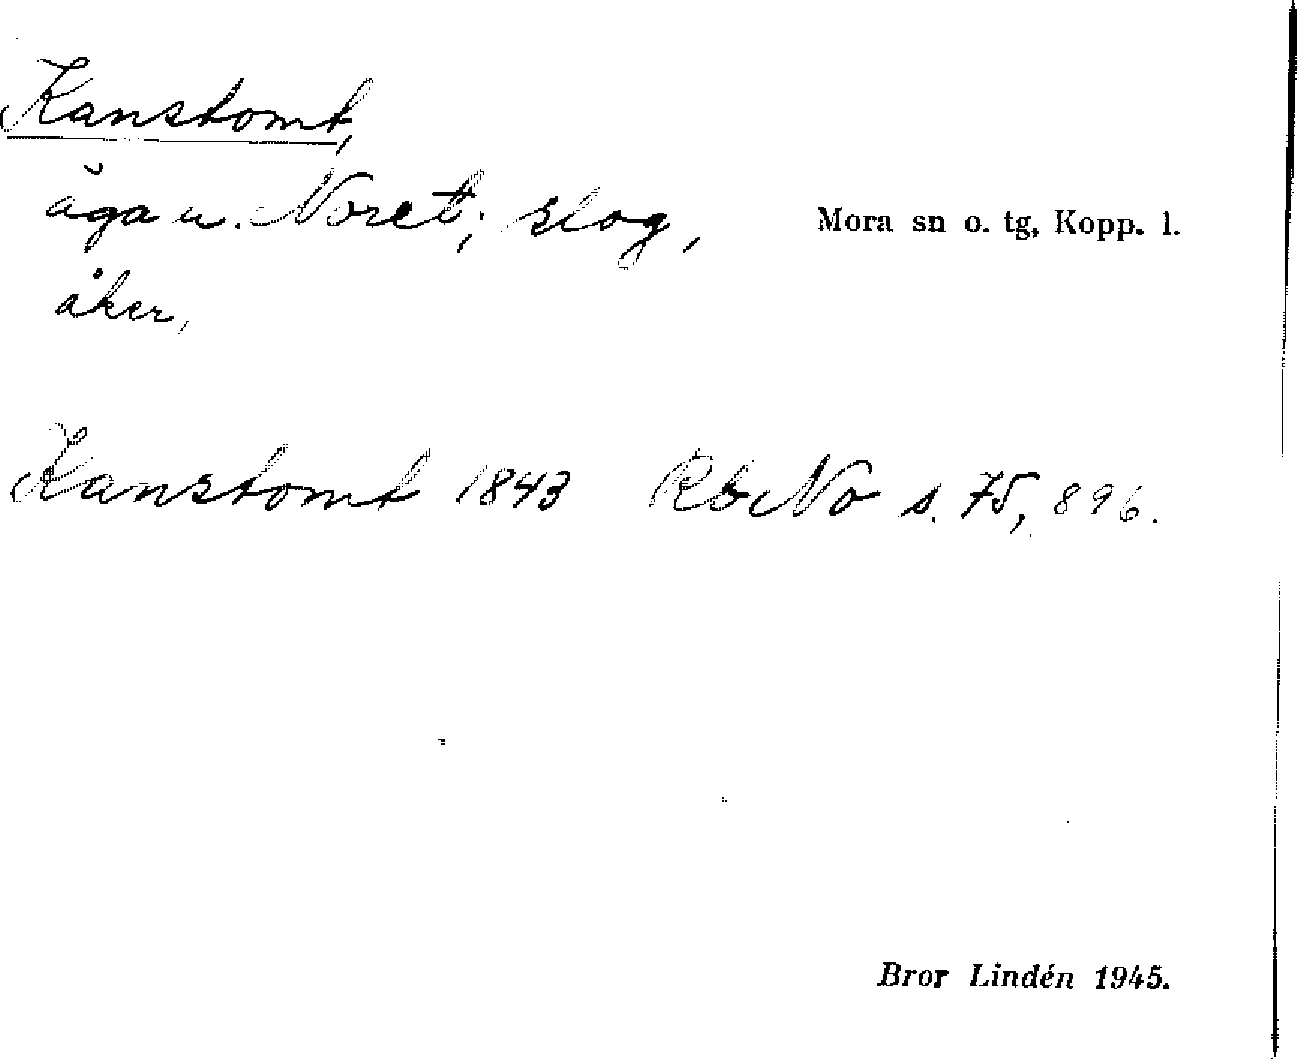 Kanstomt,
äga u. Noret; slog,
Mora sn o. tg, Kopp. l.
åker,
Kanstomt 1843 Rb No s. 75, 896.
Bror Lindén 1945.